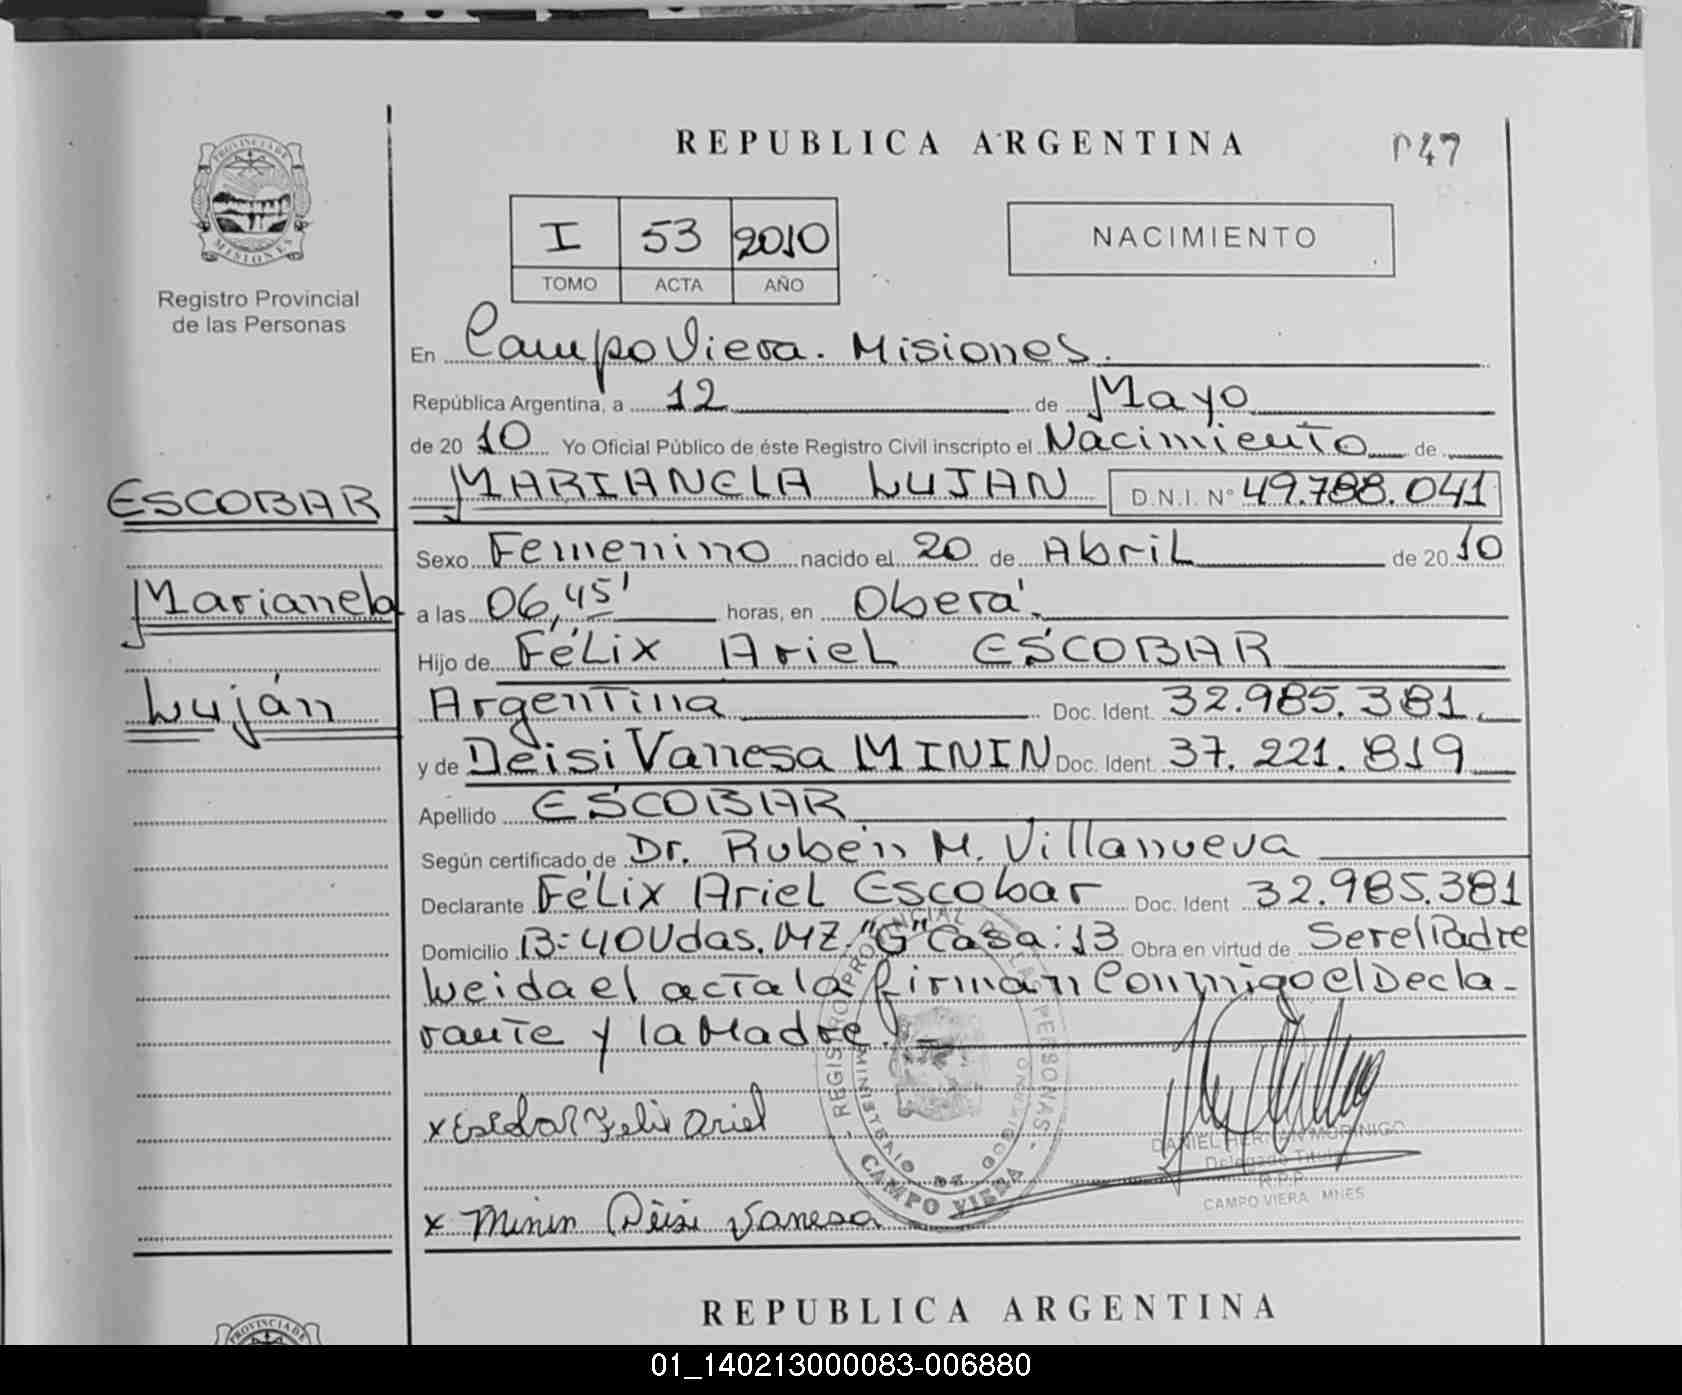 REPUBLICA ARGENTINA
047
PROVINCIA DE
MISIONES
Registro Provincial
de las Personas
I 53 2010
TOMO ACTA AÑO
NACIMIENTO
En Campo Viera. Misiones.
República Argentina, a 12 de Mayo
de 20 10 Yo Oficial Público de éste Registro Civil inscripto el Nacimiento de
ESCOBAR
Marianela
Luján
MARIANELA LUJAN D.N.I. N° 49.788.041
Sexo Femenino nacido el 20 de Abril de 20 10
a las 06,45' horas, en Oberá.
Hijo de Félix Ariel ESCOBAR
Argentina Doc. Ident. 32.985.381.
y de Deisi Vanesa MININ Doc. Ident. 37.221.819
Apellido ESCOBAR
Según certificado de Dr. Rubén M. Villanueva
Declarante Félix Ariel Escobar Doc. Ident 32.985.381
Domicilio B: 40 Vdas. MZ. "G" Casa: 13 Obra en virtud de Ser el Padre
Leida el acta la firman Conmigo el Decla-
rante y la Madre.
REGISTRO PROVINCIAL DE LAS PERSONAS - CAMPO VIERA -
MINISTERIO DE GOBIERNO
x Escobar Felix Ariel
DANIEL HERNAN MORINIGO
Delegado Titular
R.P.P.
CAMPO VIERA MNES
x Minin Deisi Vanesa
REPUBLICA ARGENTINA
PROVINCIA DE
01_140213000083-006880